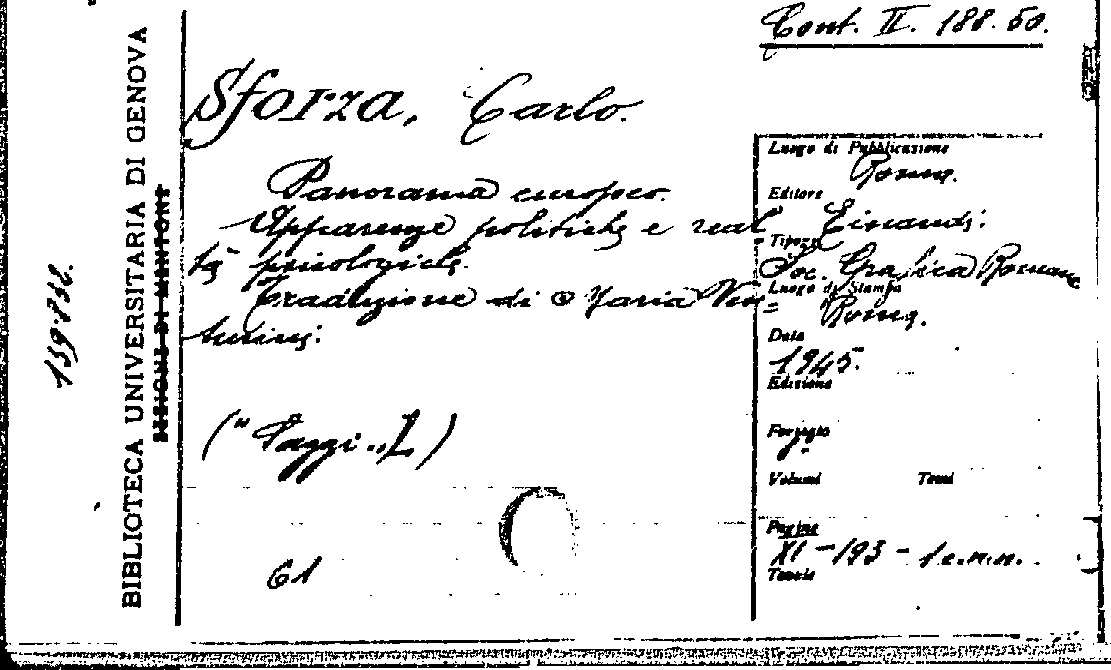 Cont. II. 188. 50.
Sforza, Carlo.
Panorama europeo.
Apparenze politiche e real
tà psicologiche.
Traduzione di Maria Ven=
turini.
("Saggi„ I)
61
Luogo di Pubblicazione
Roma.
Editore
Einaudi.
Tipogr.
Soc. Grafica Romana
Luogo di Stampa
Roma.
Data
1945.
Edizione
Formato
Volumi Tomi
Pagine
XI-193-1 c.n.n.
Tavole
BIBLIOTECA UNIVERSITARIA DI GENOVA
159.732.